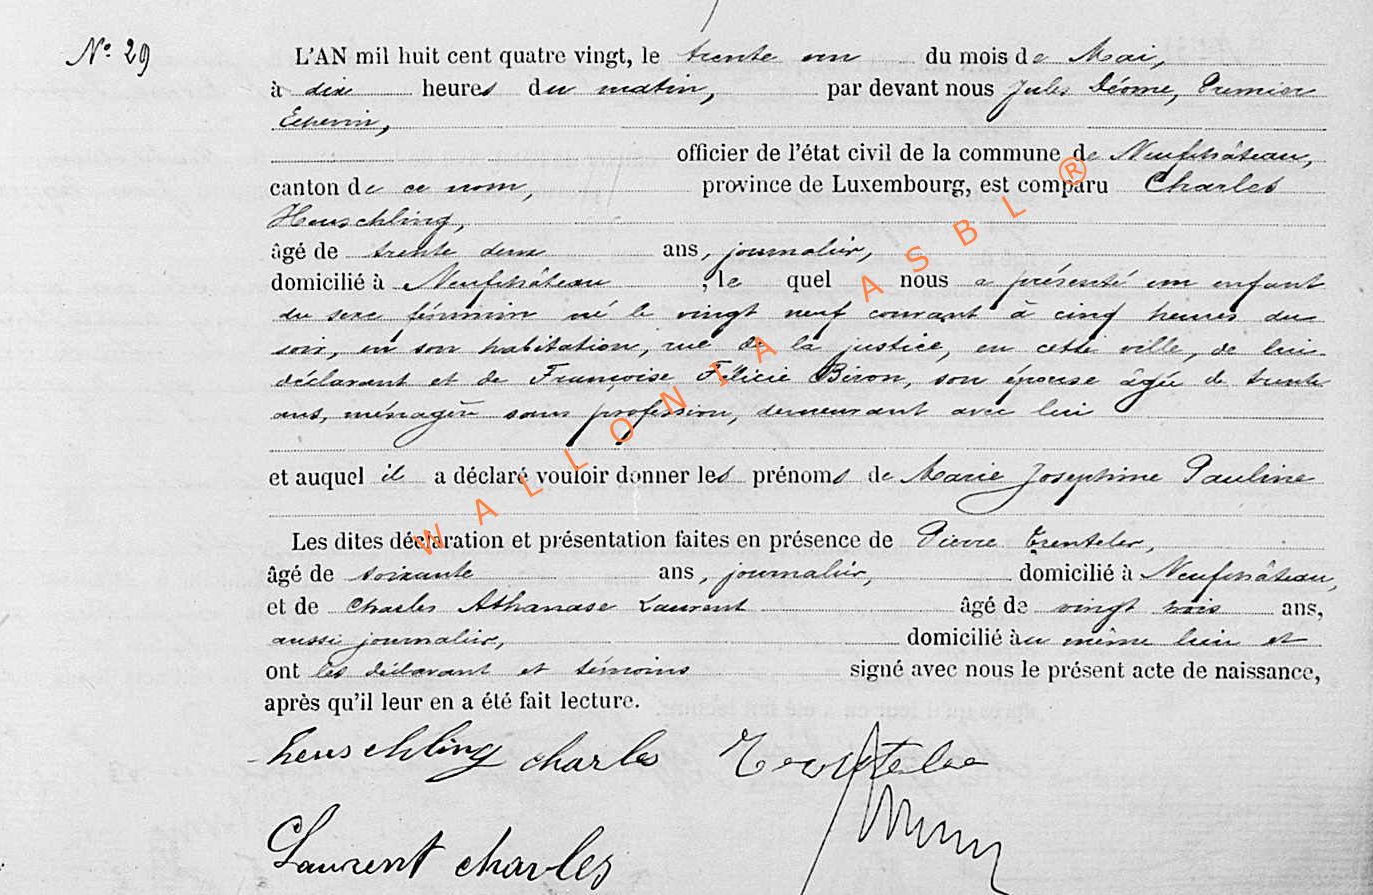 N° 29
L'AN mil huit cent quatre vingt, le trente un du mois de Mai,
à dix heures du matin, par devant nous Jules Déome, Premier
Echevin,
officier de l'état civil de la commune de Neufchâteau,
canton de ce nom, province de Luxembourg, est comparu Charles
Heuschling,
âgé de trente deux ans, journalier,
domicilié à Neufchâteau, le quel nous a présenté un enfant
du sexe féminin né le vingt neuf courant à cinq heures du
soir, en son habitation, rue de la justice, en cette ville, de lui
déclarant et de Françoise Félicie Biron, son épouse âgée de trente
ans, ménagère sans profession, demeurant avec lui
et auquel il a déclaré vouloir donner les prénoms de Marie Josephine Pauline
Les dites déclaration et présentation faites en présence de Pierre Trenteler,
âgé de soixante ans, journalier, domicilié à Neufchâteau,
et de Charles Athanase Laurent âgé de vingt trois ans,
aussi journalier, domicilié au même lieu et
ont les déclarant et témoins signé avec nous le présent acte de naissance,
après qu'il leur en a été fait lecture.
heuschling charles
Laurent charles
WALLONIA ASBL ®